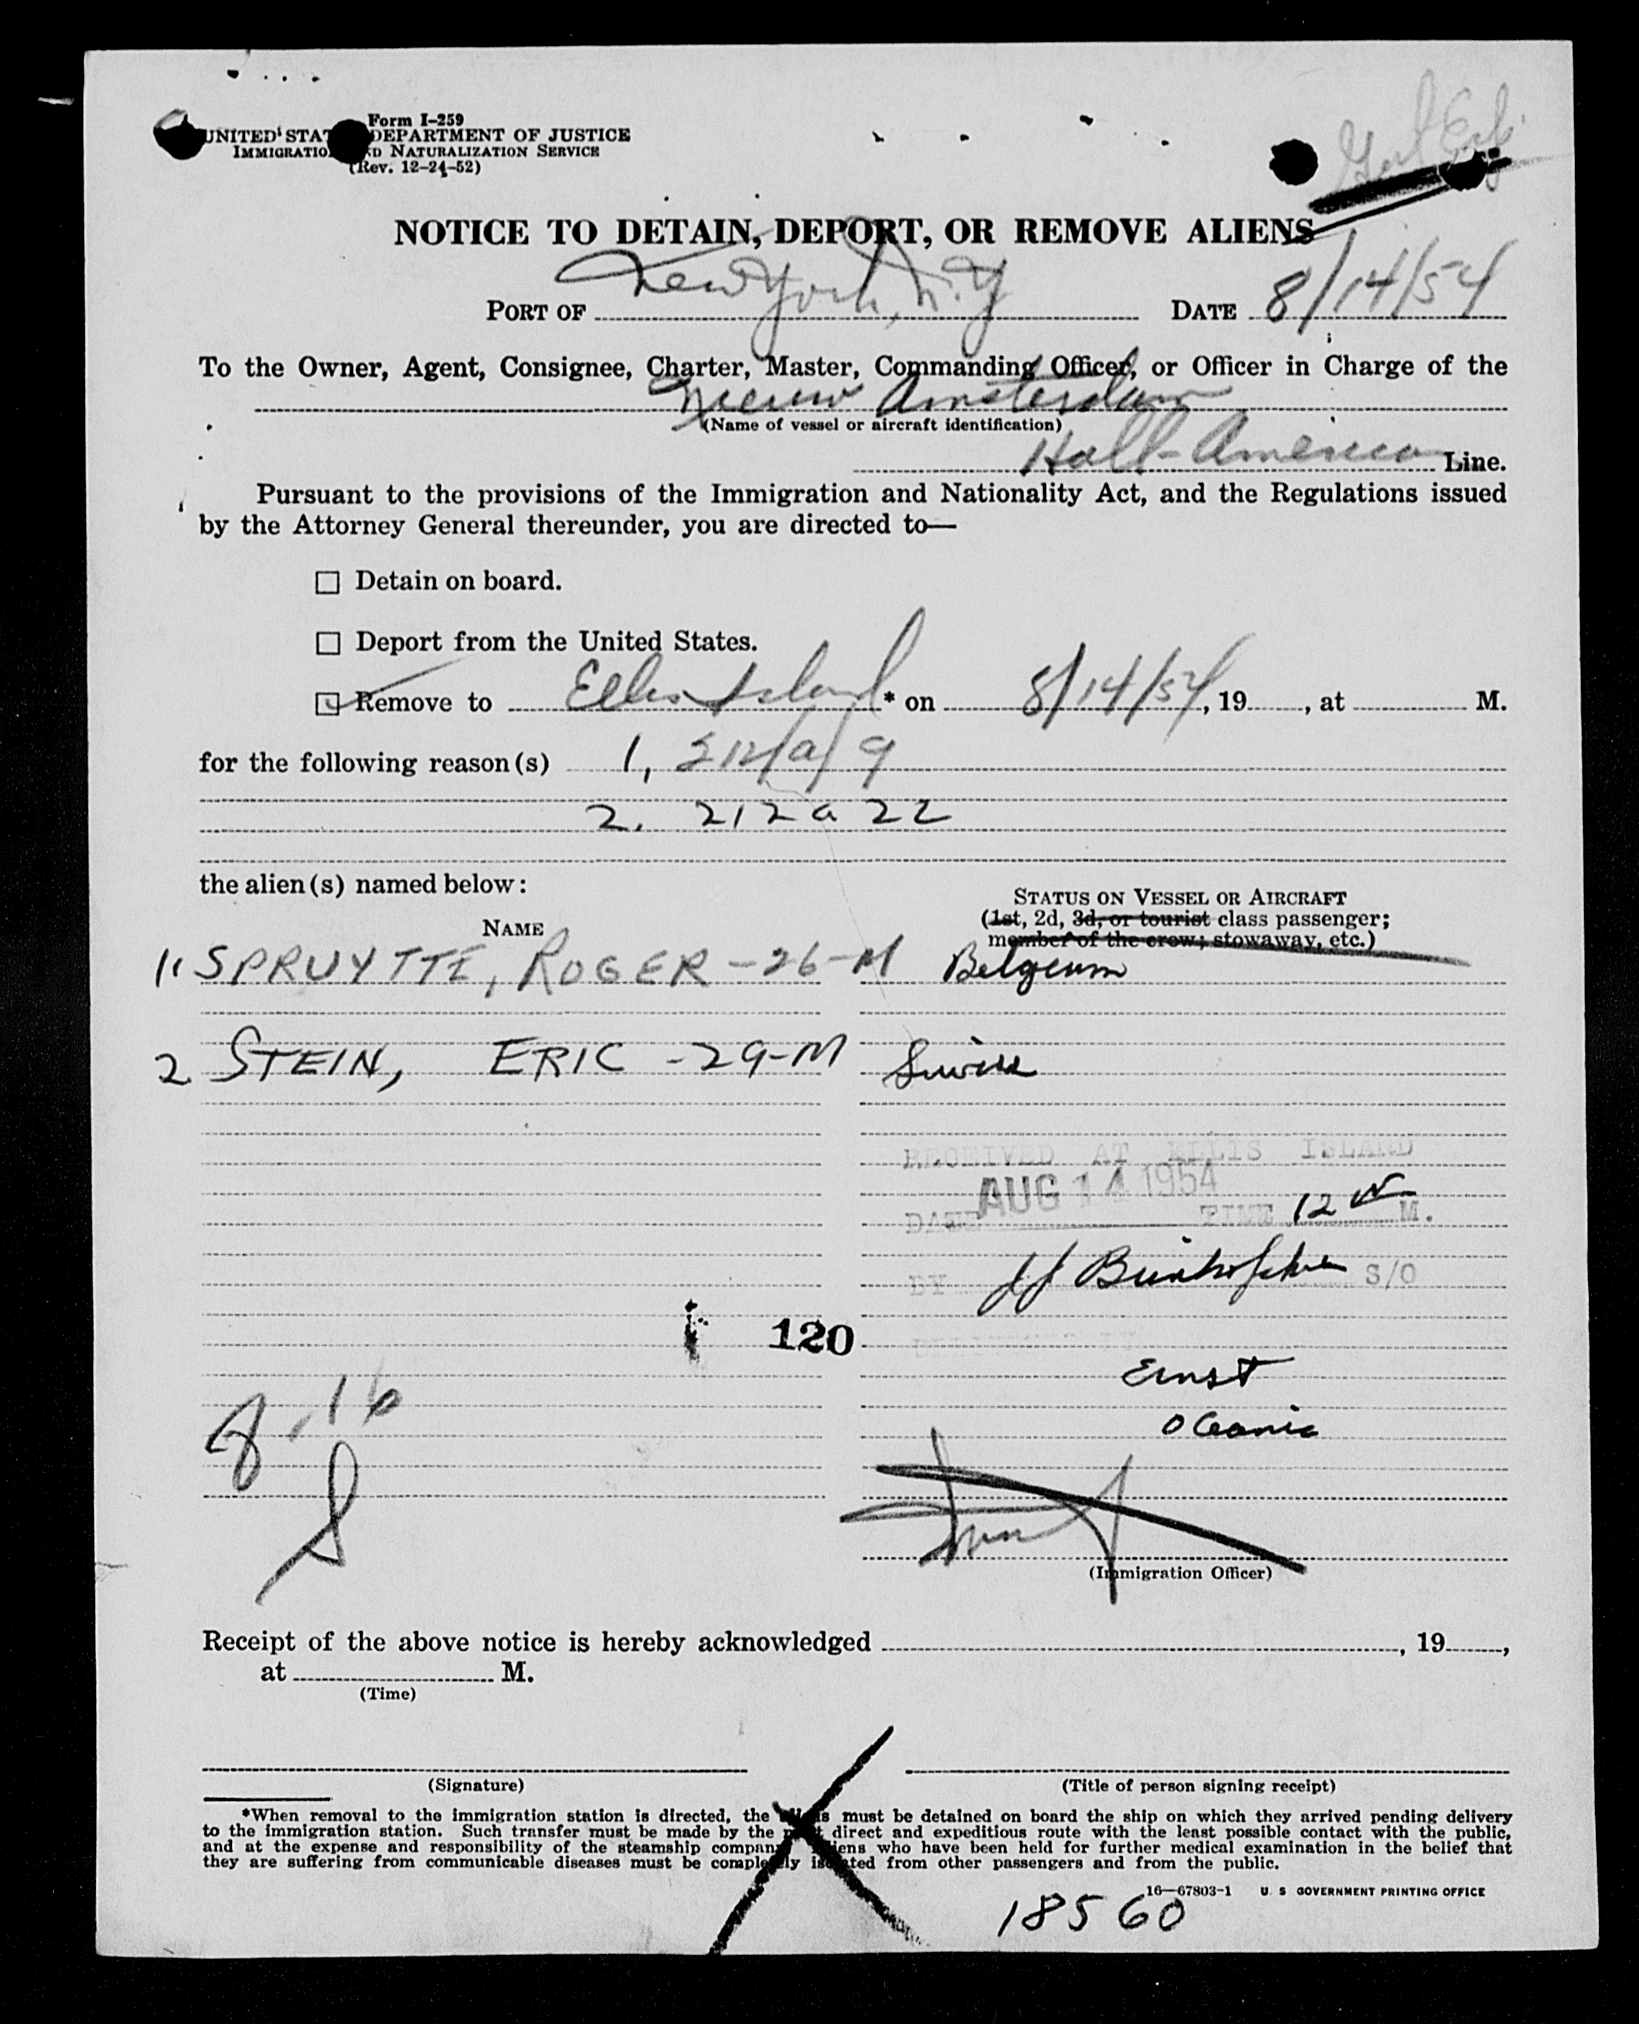 Form I-259
UNITED STA DEPARTMENT OF JUSTICE
IMMIGRATIO D NATURALIZATION SERVICE
(Rev. 12-24-52)
NOTICE TO DETAIN, DEPORT, OR REMOVE ALIENS
PORT OF New York, N.Y DATE 8/14/54
To the Owner, Agent, Consignee, Charter, Master, Commanding Officer, or Officer in Charge of the
Nieuw Amsterdam
(Name of vessel or aircraft identification)
Holl-America Line.
Pursuant to the provisions of the Immigration and Nationality Act, and the Regulations issued
by the Attorney General thereunder, you are directed to—
☐ Detain on board.
☐ Deport from the United States.
☑ Remove to Ellis Island * on 8/14/54, 19, at M.
for the following reason(s) 1, 212/a/9
2. 212 a 22
the alien(s) named below:
NAME
STATUS ON VESSEL OR AIRCRAFT
(1st, 2d, 3d, or tourist class passenger;
member of the crew; stowaway, etc.)
1. SPRUYTTE, ROGER - 26 - M Belgeum
2 STEIN, ERIC - 29 - M Swiss
RECEIVED AT ELLIS ISLAND
DATE AUG 14 1954 TIME 12 M.
BY S/O
120
Ernst
Oceanic
8.16
(Immigration Officer)
Receipt of the above notice is hereby acknowledged , 19 ,
at M.
(Time)
(Signature) (Title of person signing receipt)
*When removal to the immigration station is directed, the s must be detained on board the ship on which they arrived pending delivery
to the immigration station. Such transfer must be made by the direct and expeditious route with the least possible contact with the public,
and at the expense and responsibility of the steamship compan iens who have been held for further medical examination in the belief that
they are suffering from communicable diseases must be completely isolated from other passengers and from the public.
16—67803-1 U. S. GOVERNMENT PRINTING OFFICE
18560